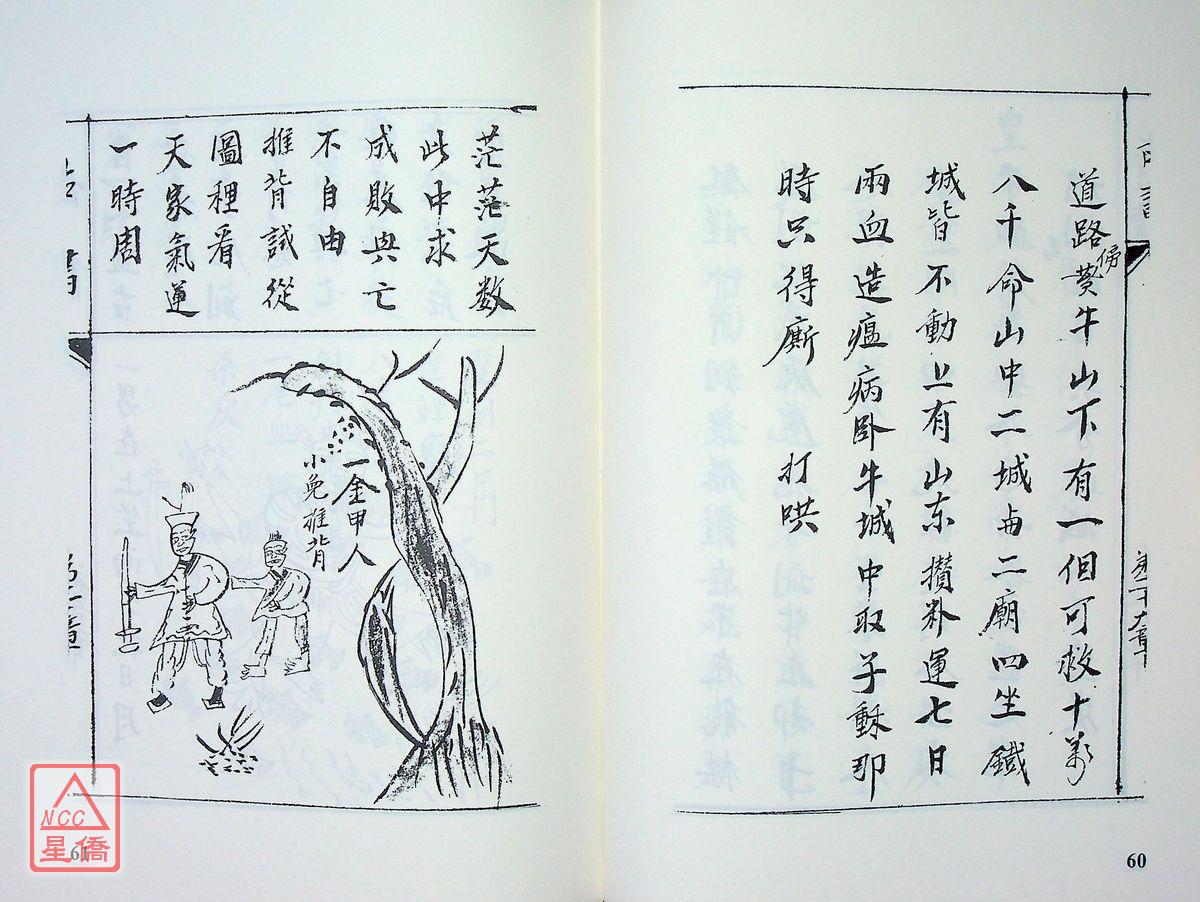 道路傍黄牛山下有一但可救十萬
八千命山中二城与二廟四坐鐵
城皆不動上有山东攢粆運七日
雨血造瘟病卧牛城中取子穌那
時只得廝打哄
60
茫茫天数
此中求
成敗與亡
不自由
推背試從
圖裡看
天家氣運
一時周
一金甲人
小兔推背
61
NCC
星僑